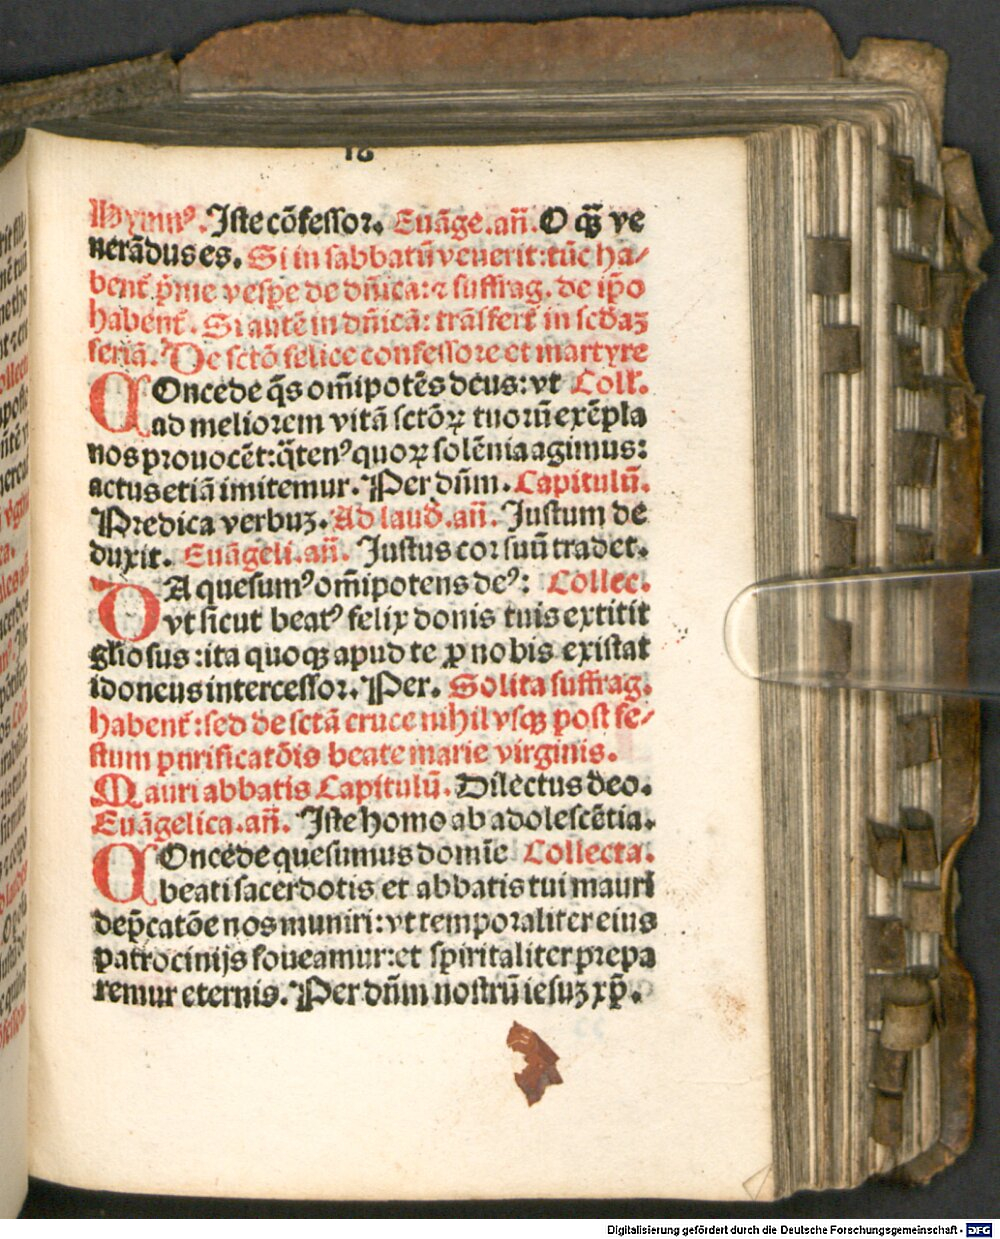 Hymnꝰ. Iste cõfessor. Euãge.añ. O q̃ꝫ ve
nerãdus es. Si in sabbatũ venerit: tũc ha⸗
bent̃ p̃me vespe de dñica: ⁊ suffrag. de ip̃o
habent̃. Si autẽ in dñica: trãsfert̃ in scd̃aꝫ
feriã. De sctõ felice confessore et martyre
COncede q̃s om̃ipotẽs deus: vt Coll'.
ad meliorem vitã sctõꝝ tuorũ exẽpla
nos prouocẽt: q̃tenꝰ quoꝝ solẽnia agimus:
actus etiã imitemur. Per dñm. Capitulũ.
Predica verbuꝫ. Ad laud̃. añ. Justum de
duxit. Euãgeli.añ. Justus cor suũ tradet.
DA quesumꝰ om̃ipotens deꝰ: Collec.
vt sicut beatꝰ felix donis tuis extitit
gl̃iosus: ita quoqꝫ apud te ꝓ nobis existat
idoneus intercessor. Per. Solita suffrag.
habent̃: sed de sctã cruce nihil vsqꝫ post fe⸗
stum purificatõis beate marie virginis.
Mauri abbatis Capitulũ. Dilectus deo.
Euãgelica.añ. Iste homo ab adolescẽtia.
COncede quesumus domĩe Collecta.
beati sacerdotis et abbatis tui mauri
dep̃catõe nos muniri: vt temporaliter eius
patrocinijs foueamur: et spiritaliter prepa
remur eternis. Per dñm nostrũ iesuꝫ xp̃.
Digitalisierung gefördert durch die Deutsche Forschungsgemeinschaft - DFG